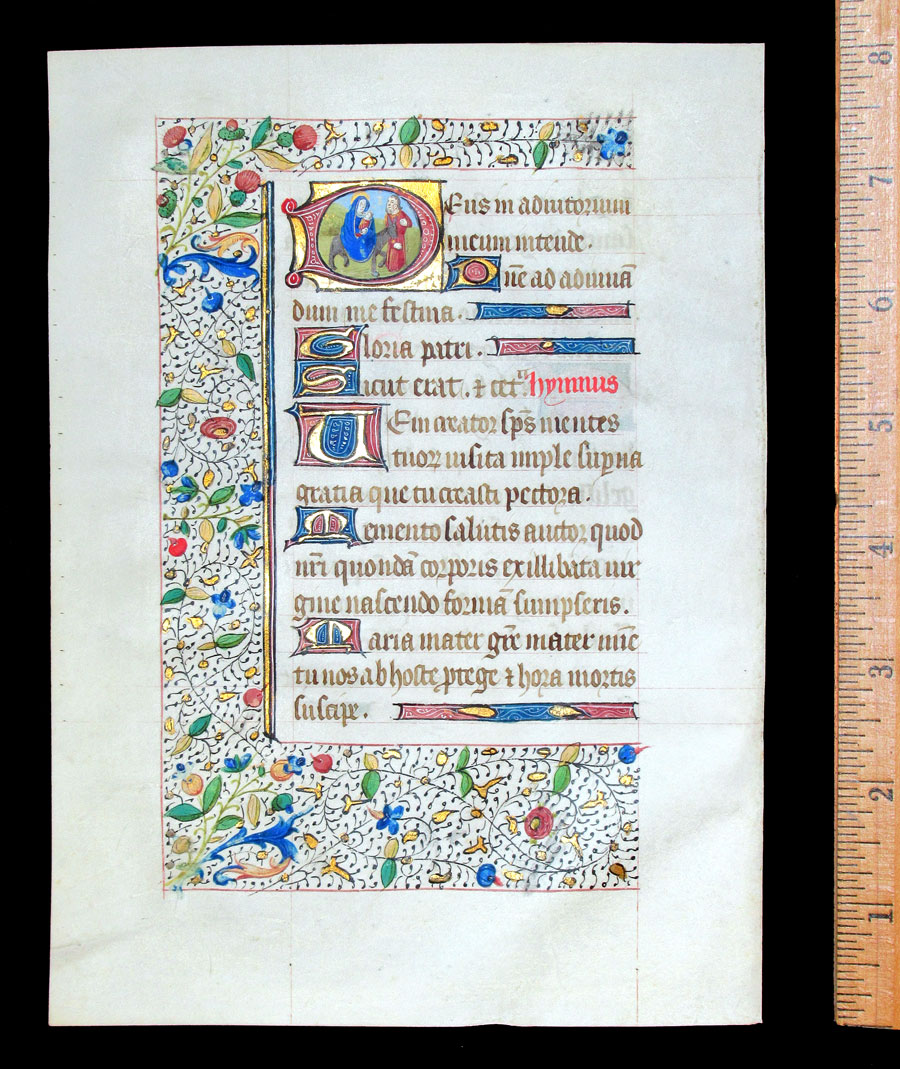 Deus in adiutorium
meum intende.
Dñe ad adiuuā
dum me festina.
Gloria patri.
Sicut erat. ⁊ cet. hymnus
Veni creator sp̄s mentes
tuorꝝ uisita imple suꝑna
gratia que tu creasti pectora.
Memento salutis auctor quod
nr̄i quondā corporis ex illibata uir
gine nascendo formā sumpseris.
Maria mater gr̄e mater mīe
tu nos ab hoste ꝓtege ⁊ hora mortis
suscipe.
8
7
6
5
4
3
2
1